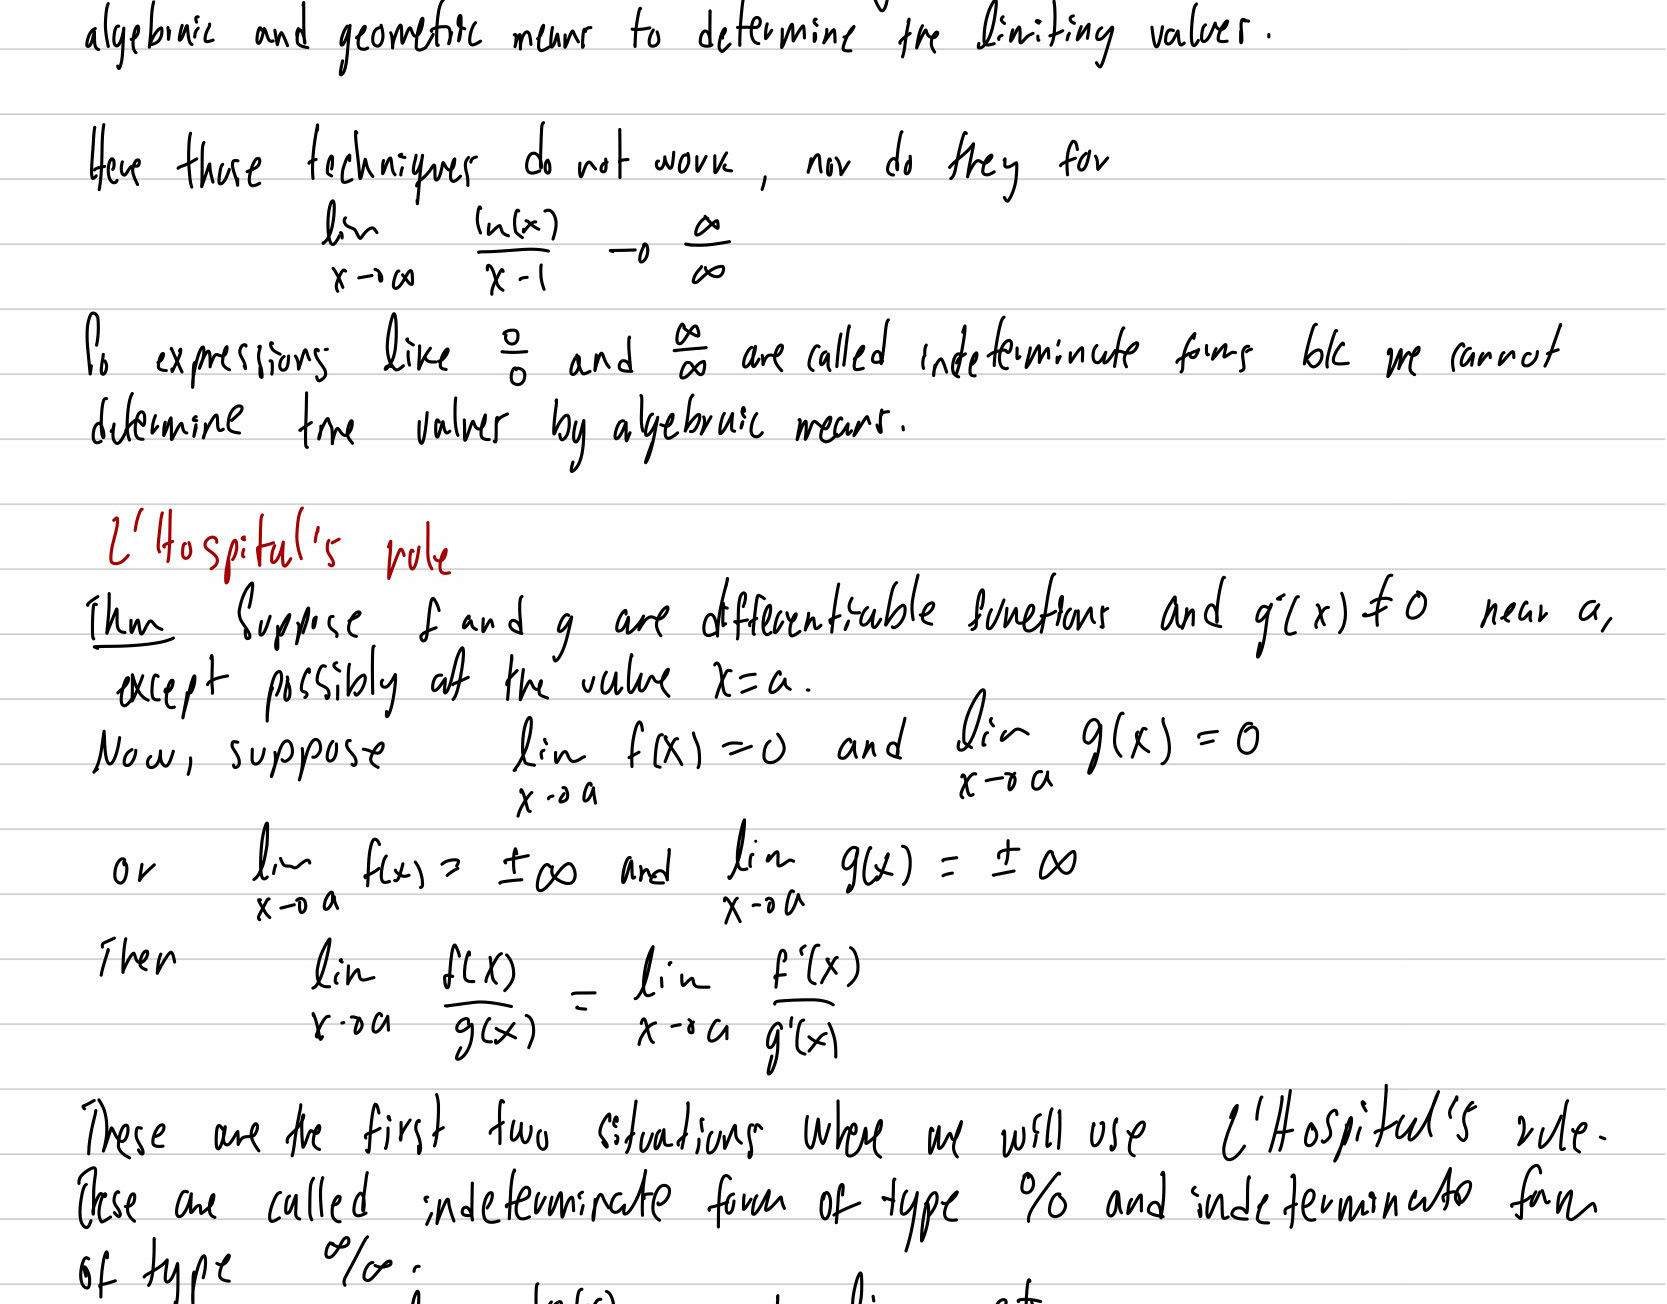 algebraic and geometric means to determine the limiting values.
Here those techniques do not work, nor do they for
lim x→∞ ln(x)/(x-1) → ∞/∞
So expressions like 0/0 and ∞/∞ are called indeterminate forms b/c we cannot
determine the values by algebraic means.
L'Hospital's rule
Thm Suppose f and g are differentiable functions and g'(x) ≠ 0 near a,
except possibly at the value x=a.
Now, suppose lim x→a f(x) = 0 and lim x→a g(x) = 0
or lim x→a f(x) = ±∞ and lim x→a g(x) = ±∞
Then lim x→a f(x)/g(x) = lim x→a f'(x)/g'(x)
These are the first two situations where we will use L'Hospital's rule.
These are called indeterminate form of type 0/0 and indeterminate form
of type ∞/∞.